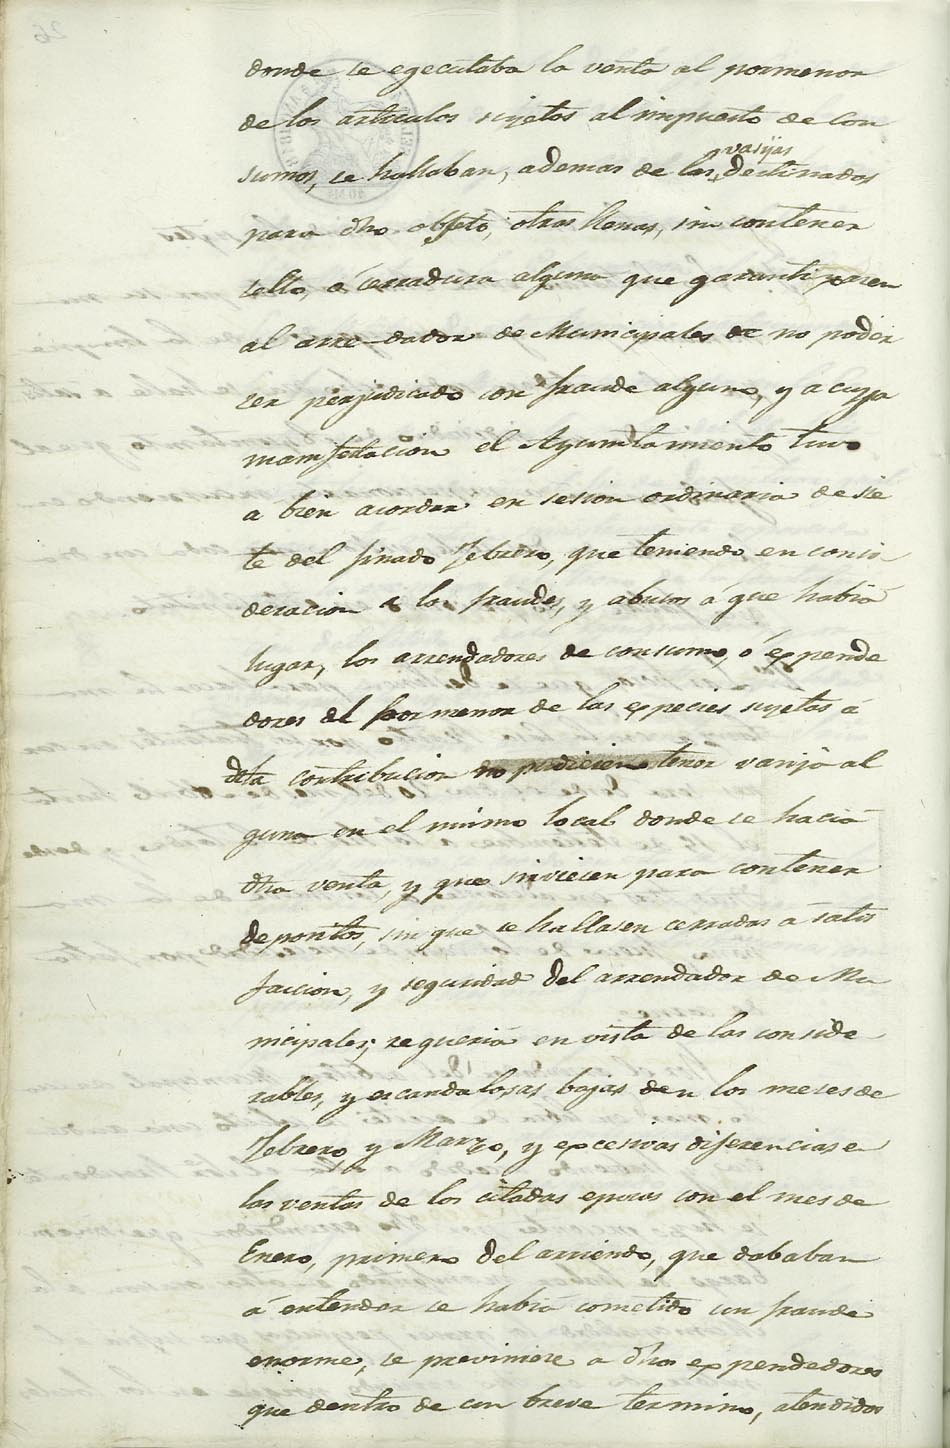 donde se egecutaba la venta al pormenor
de los articulos sujetos al impuesto de Con
sumos, se hallaban, ademas de las vasijas destinadas
para dho objeto, otras llenas, sin contener
sello, ó cerradura alguna que garantizasen
al arrendador de Municipales de no poder
ser perjudicado con fraude alguno, y a cuya
manifestacion el Ayuntamiento tuvo
a bien acordar en sesion ordinaria de sie
te del finado Febrero, que teniendo en consi
deracion a los fraudes, y abusos á que habia
lugar, los arrendadores de consumo, ó éspende
dores del por menor de las especies sujetas á
dcha contribucion no pudiesen tener vasija al
guna en el mismo local donde se hacia
dha venta, y que sirviesen para contener
depositos, sin que se hallasen cerradas á satis
faccion, y seguridad del arrendador de Mu
nicipales; requeria en vista de las conside
rables, y escandalosas bajas en los meses de
Febrero y Marzo, y excesivas diferencias e
las ventas de las citadas epocas con el mes de
Enero, primero del arriendo, que daban
á entender se habia cometido un fraude
enorme, se previniese a dhos expendedores
que dentro de un breve termino, atendidos